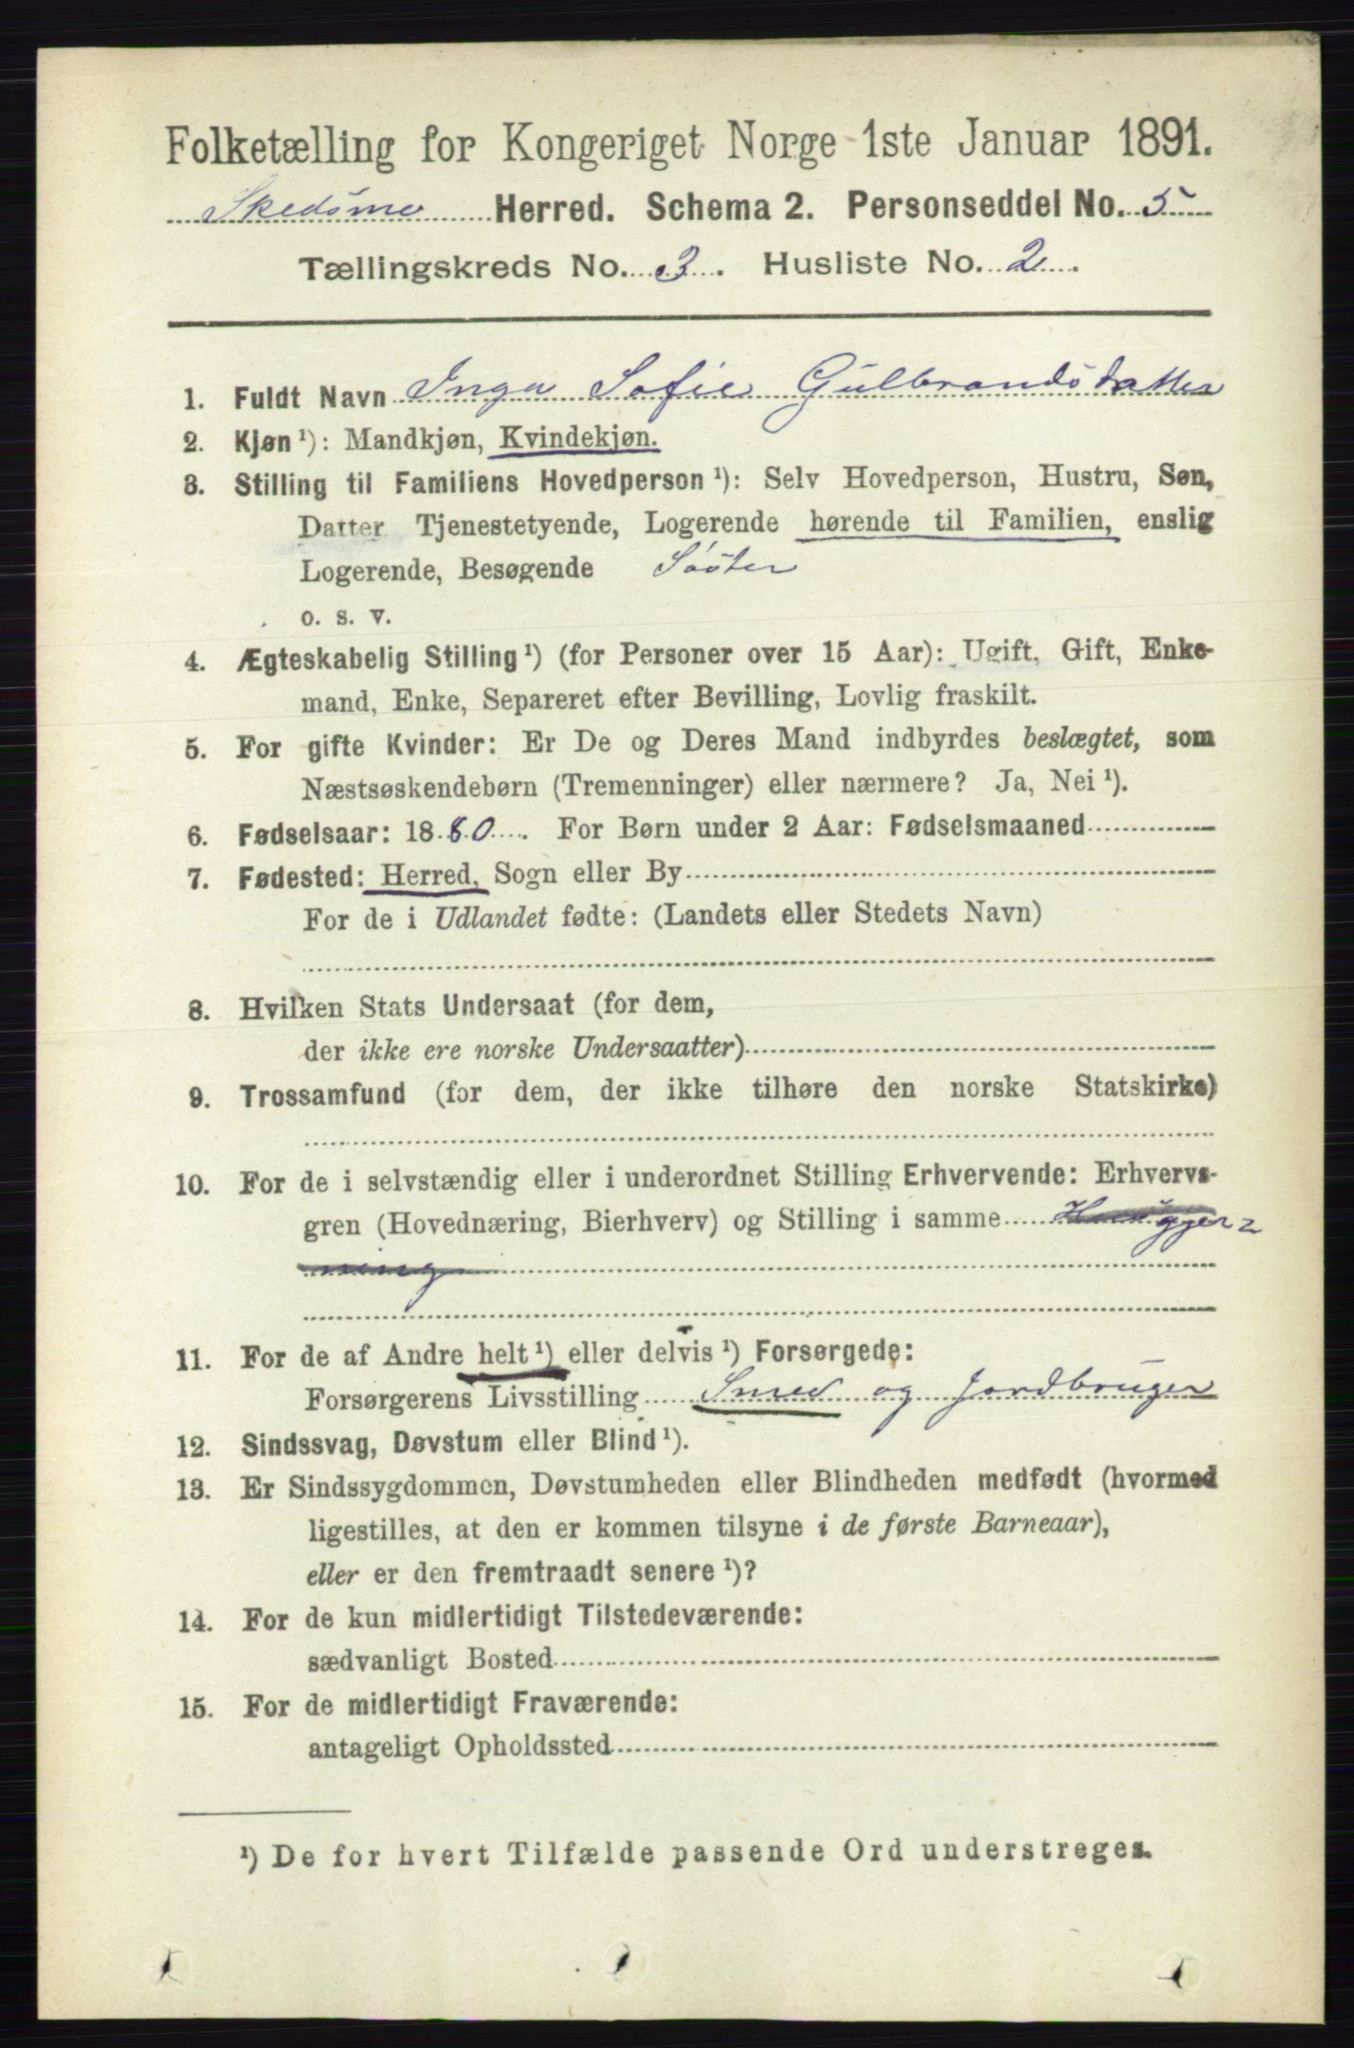 Folketælling for Kongeriget Norge 1ste Januar 1891.
Skedsmo Herred. Schema 2. Personseddel No. 5
Tællingskreds No. 3. Husliste No. 2.
1. Fuldt Navn Inga Sofie Gulbrandsdatter
2. Kjøn ¹): Mandkjøn, Kvindekjøn.
3. Stilling til Familiens Hovedperson ¹): Selv Hovedperson, Hustru, Søn,
Datter Tjenestetyende, Logerende hørende til Familien, enslig
Logerende, Besøgende Søster
o. s. v.
4. Ægteskabelig Stilling ¹) (for Personer over 15 Aar): Ugift, Gift, Enke-
mand, Enke, Separeret efter Bevilling, Lovlig fraskilt.
5. For gifte Kvinder: Er De og Deres Mand indbyrdes beslægtet, som
Næstsøskendebørn (Tremenninger) eller nærmere? Ja, Nei ¹).
6. Fødselsaar: 1880. For Børn under 2 Aar: Fødselsmaaned
7. Fødested: Herred, Sogn eller By
For de i Udlandet fødte: (Landets eller Stedets Navn)
8. Hvilken Stats Undersaat (for dem,
der ikke ere norske Undersaatter)
9. Trossamfund (for dem, der ikke tilhøre den norske Statskirke)
10. For de i selvstændig eller i underordnet Stilling Erhvervende: Erhvervs-
gren (Hovednæring, Bierhverv) og Stilling i samme
11. For de af Andre helt ¹) eller delvis ¹) Forsørgede:
Forsørgerens Livsstilling Smed og Jordbruger
12. Sindssvag, Døvstum eller Blind ¹).
13. Er Sindssygdommen, Døvstumheden eller Blindheden medfødt (hvormed
ligestilles, at den er kommen tilsyne i de første Barneaar),
eller er den fremtraadt senere ¹)?
14. For de kun midlertidigt Tilstedeværende:
sædvanligt Bosted
15. For de midlertidigt Fraværende:
antageligt Opholdssted
¹) De for hvert Tilfælde passende Ord understreges.